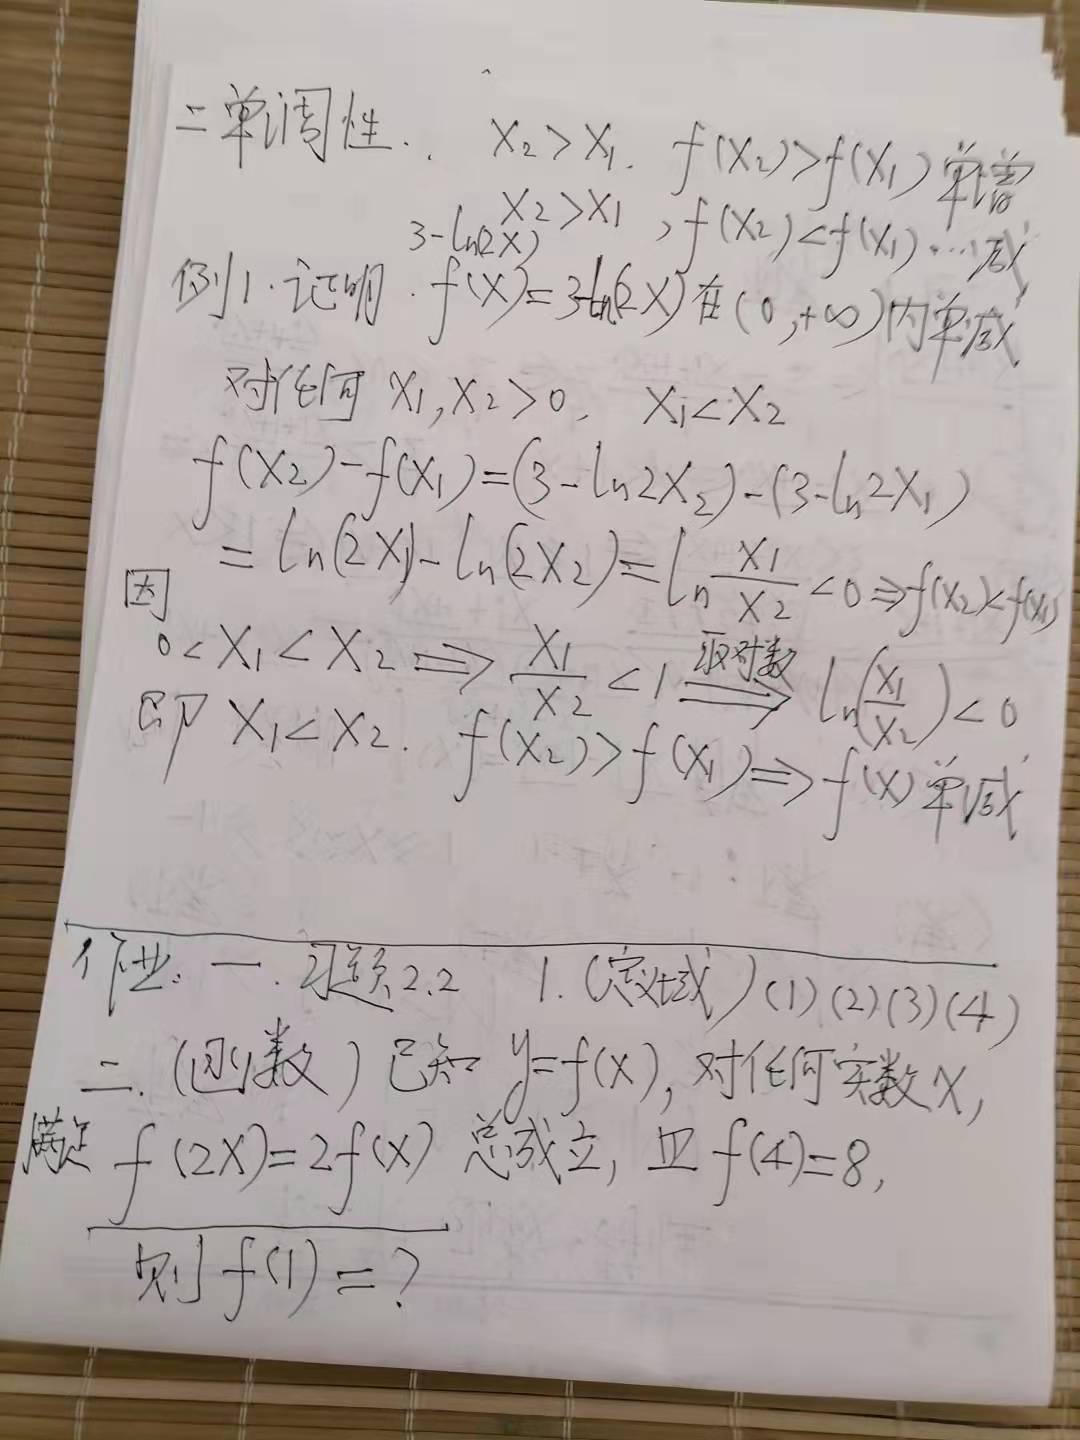 二 单调性. . X₂>X₁. f(X₂)>f(X₁) 单增
X₂>X₁ , f(X₂)<f(X₁) …减
3-ln(2X)
例1. 证明. f(X)=3-ln(2X) 在(0,+∞)内单减
对任何 X₁,X₂>0, X₁<X₂
f(X₂)-f(X₁)=(3-ln2X₂)-(3-ln2X₁)
=ln(2X₁)-ln(2X₂)=ln X₁/X₂ <0 ⇒f(X₂)<f(X₁)
因
0<X₁<X₂ ⟹ X₁/X₂ <1 取对数⟹ ln(X₁/X₂)<0
即 X₁<X₂. f(X₂)>f(X₁)⟹f(X)单减
作业: 一. 习题2.2 1.(定义域)(1)(2)(3)(4)
二.(函数) 已知 y=f(X), 对任何实数X,
满足 f(2X)=2f(X) 总成立, 且 f(4)=8,
则 f(1)=?